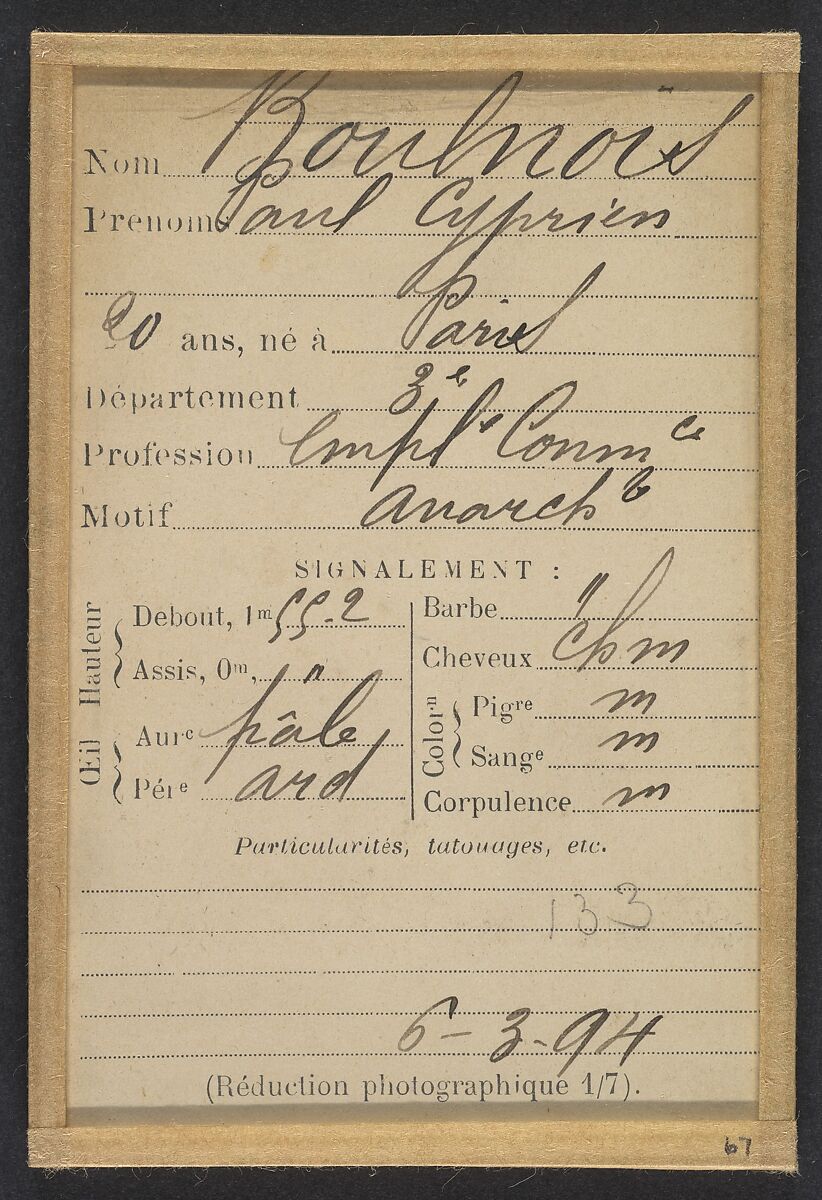 Nom Roulnois
Prénoms Paul Cyprien
20 ans, né à Paris
Département 3e
Profession Emplé Commce
Motif Anarch
SIGNALEMENT :
Hauteur
Debout, 1m 55-2
Assis, 0m, "
Œil
Aurc pâle
Péric ard
Barbe "
Cheveux chm
Colorn
Pigre m
Sange m
Corpulence m
Particularités, tatouages, etc.
133
6-3-94
(Réduction photographique 1/7).
67